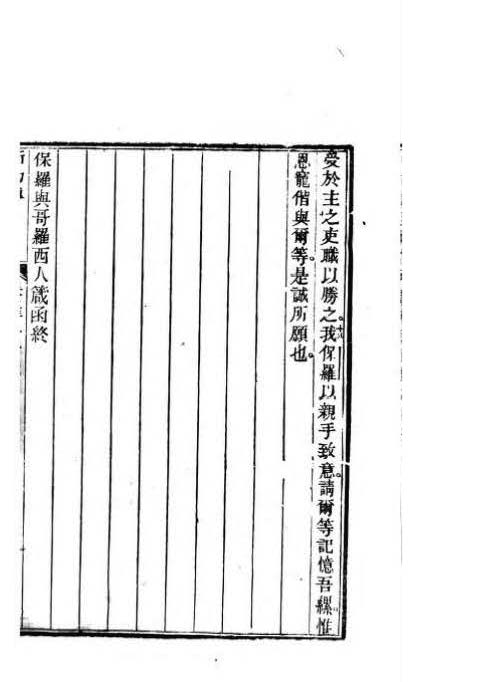 受於主之吏職以勝之。十八我保羅以親手致意。請爾等記憶吾縲。惟
恩寵偕與爾等。是誠所願也。
保羅與哥羅西人箴函終